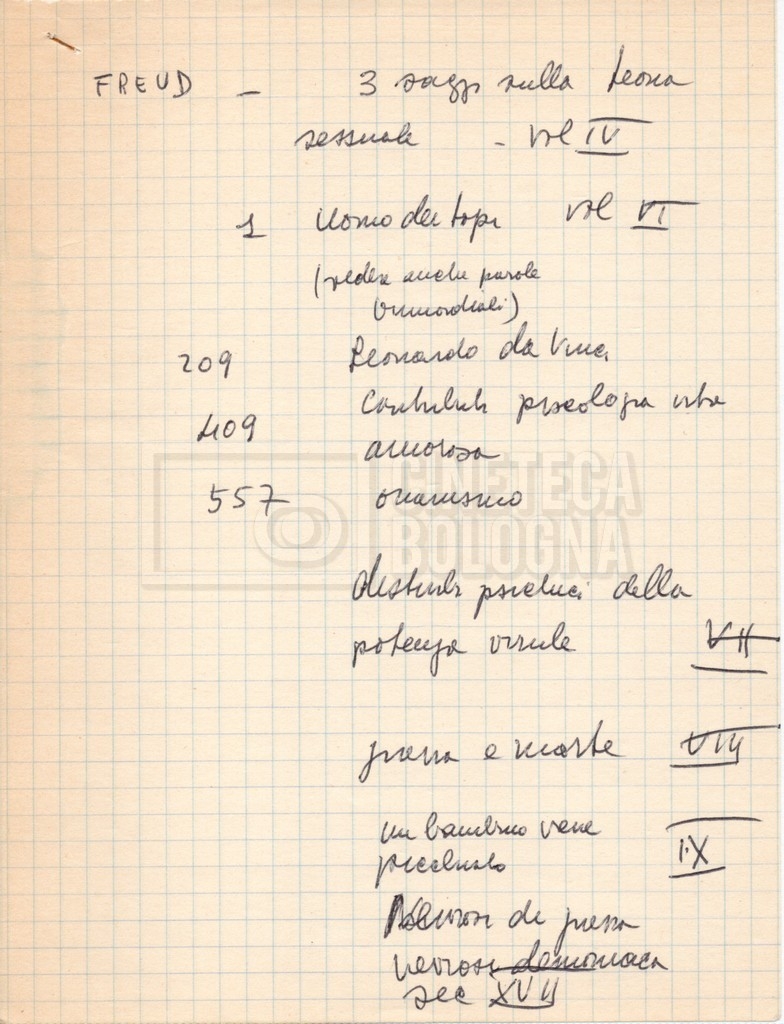 FREUD - 3 saggi sulla teoria
sessuale - vol IV
1 Uomo dei topi vol VI
(vedere anche parole
primordiali)
209 Leonardo da Vinci
409 Contributi psicologia vita
amorosa
557 onanismo
CINETECA
BOLOGNA
disturbi psichici della
potenza virile VII
guerra e morte VIII
un bambino viene
picchiato IX
Nevrosi di guerra
nevrosi demoniaca
sec XVII